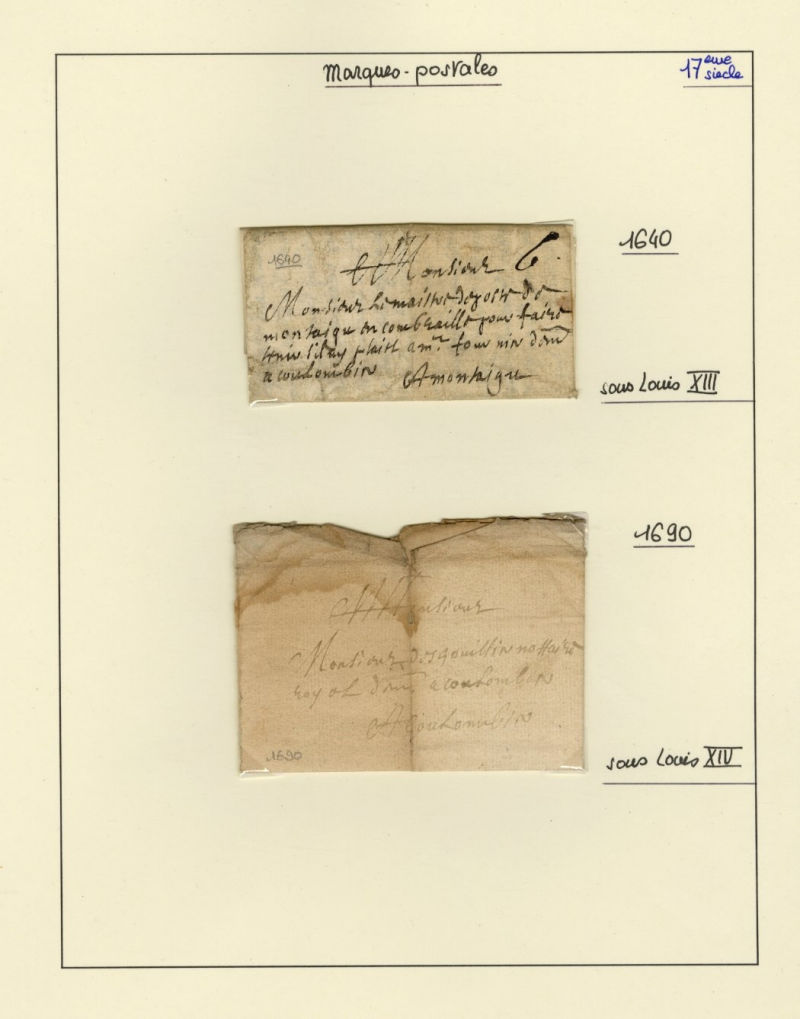 Marques-postales
17eme
siecle
1640
1640
A Monsieur 6.
Monsieur Lemaistre de poste de
montaigu en combraille pour faire
tenir sil luy plaist a mr dem
a coulombin A montaigu
sous Louis XIII
1690
A Monsieur
Monsieur nottaire
royal dem a coulombin
A Coulombin
1690
sous Louis XIV